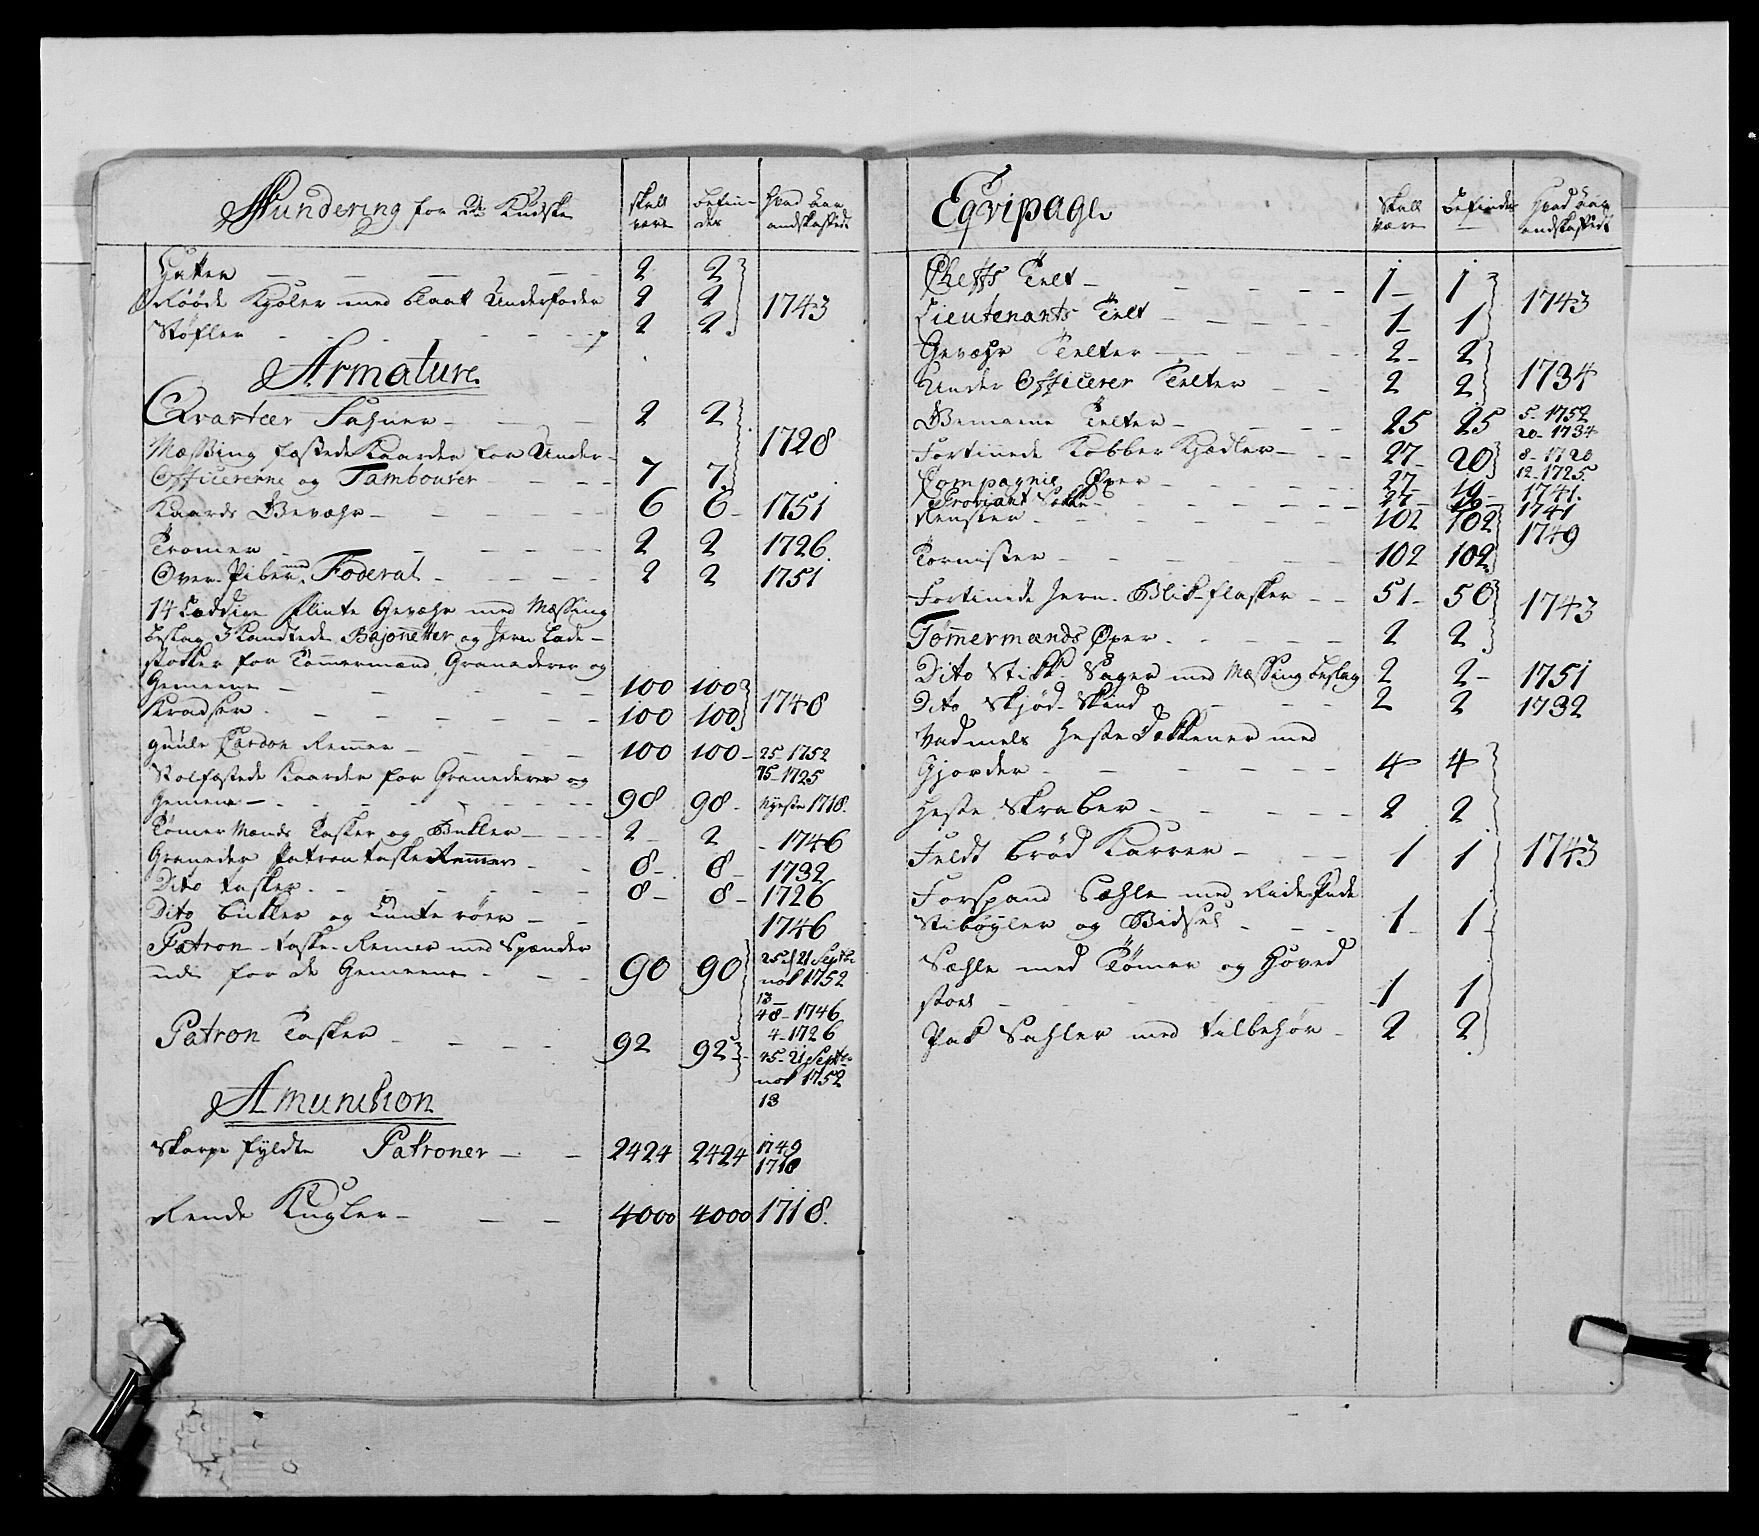 Mundering for 2de Kudske
skall være
befindes
Hvad aar andskaffede
Hatter 2 2
Røøde Kjoler med blaat Underfoder 2 2 1743
Støfler 2 2
Armature
Qvarteer Fahner 2 2
Mæssing fæstede Kaarder for Under- 1728
Officererne og Tambourer 7 7
Kaards Gevæhr 6 6 1751
Tromer 2 2 1726
Over-Piber med Foderal 2 2 1751
14 Laddige flinte Gevæhr med Mæssing
beslag 3 Kandtede Bajonetter og Jern lade-
stokker for Tømmermænd, Granaderer og
Gemeene 100 100
Kradser 100 100 1748
guule Cardon Remme 100 100 25-1752
75-1725
Staalfæstede Kaarder for Granederer og
Gemene 98 98 1718.
Tømer Mænds Tasker og Bukler 2 2 1746
Granader Patrontaske Remmer 8 8 1732
Dito tasker 8 8 1726
Dito bukler og Lunte røer 1746
Patron-taske-Remer med Spænder
udi for de Gemeene 90 90 25 d 21 Septbr
1752
13
48-1746
4-1726
Patron Tasker 92 92 45-21 Septbr
1752
13
Amunition
Skarpe fyldte Patroner 2424 2424 1749
1718
Rende Kugler 4000 4000 1718.
Eqvipage
Skall være
befindes
Hvad aar andskaffede
Cheffs Telt 1 1
Lieutenants Telt 1 1 1743
Gevæhr Telter 2 2
Under Officerer Telter 2 2 1734
Gemeene Telter 25 25 5-1752
20-1734
Fortinnede Kobber Kjedler 27 20 8-1720
12-1725.
Compagnie Øxer 27 19 1741.
Proviant Sække 27 1741
Rensler 102 102 1749
Tornister 102 102
Fortinede Jern-Blik-flasker 51 50 1743
Tømmermænds Øxer 2 2
Dito Stikk Sager med Mæssing beslag 2 2 1751
Dito Skjød-Skind 2 2 1732
Vadmels Heste Dekkener med
Gjorder 4 4
Heste Skraber 2 2
Feldt brød Karrer 1 1 1743
Forspand Sæhle med Ride Pude
Stibøgler og Bidsel 1 1
Sæhle med Tømer og Hoved
stoel 1 1
Pak Sahler med tilbehør 2 2